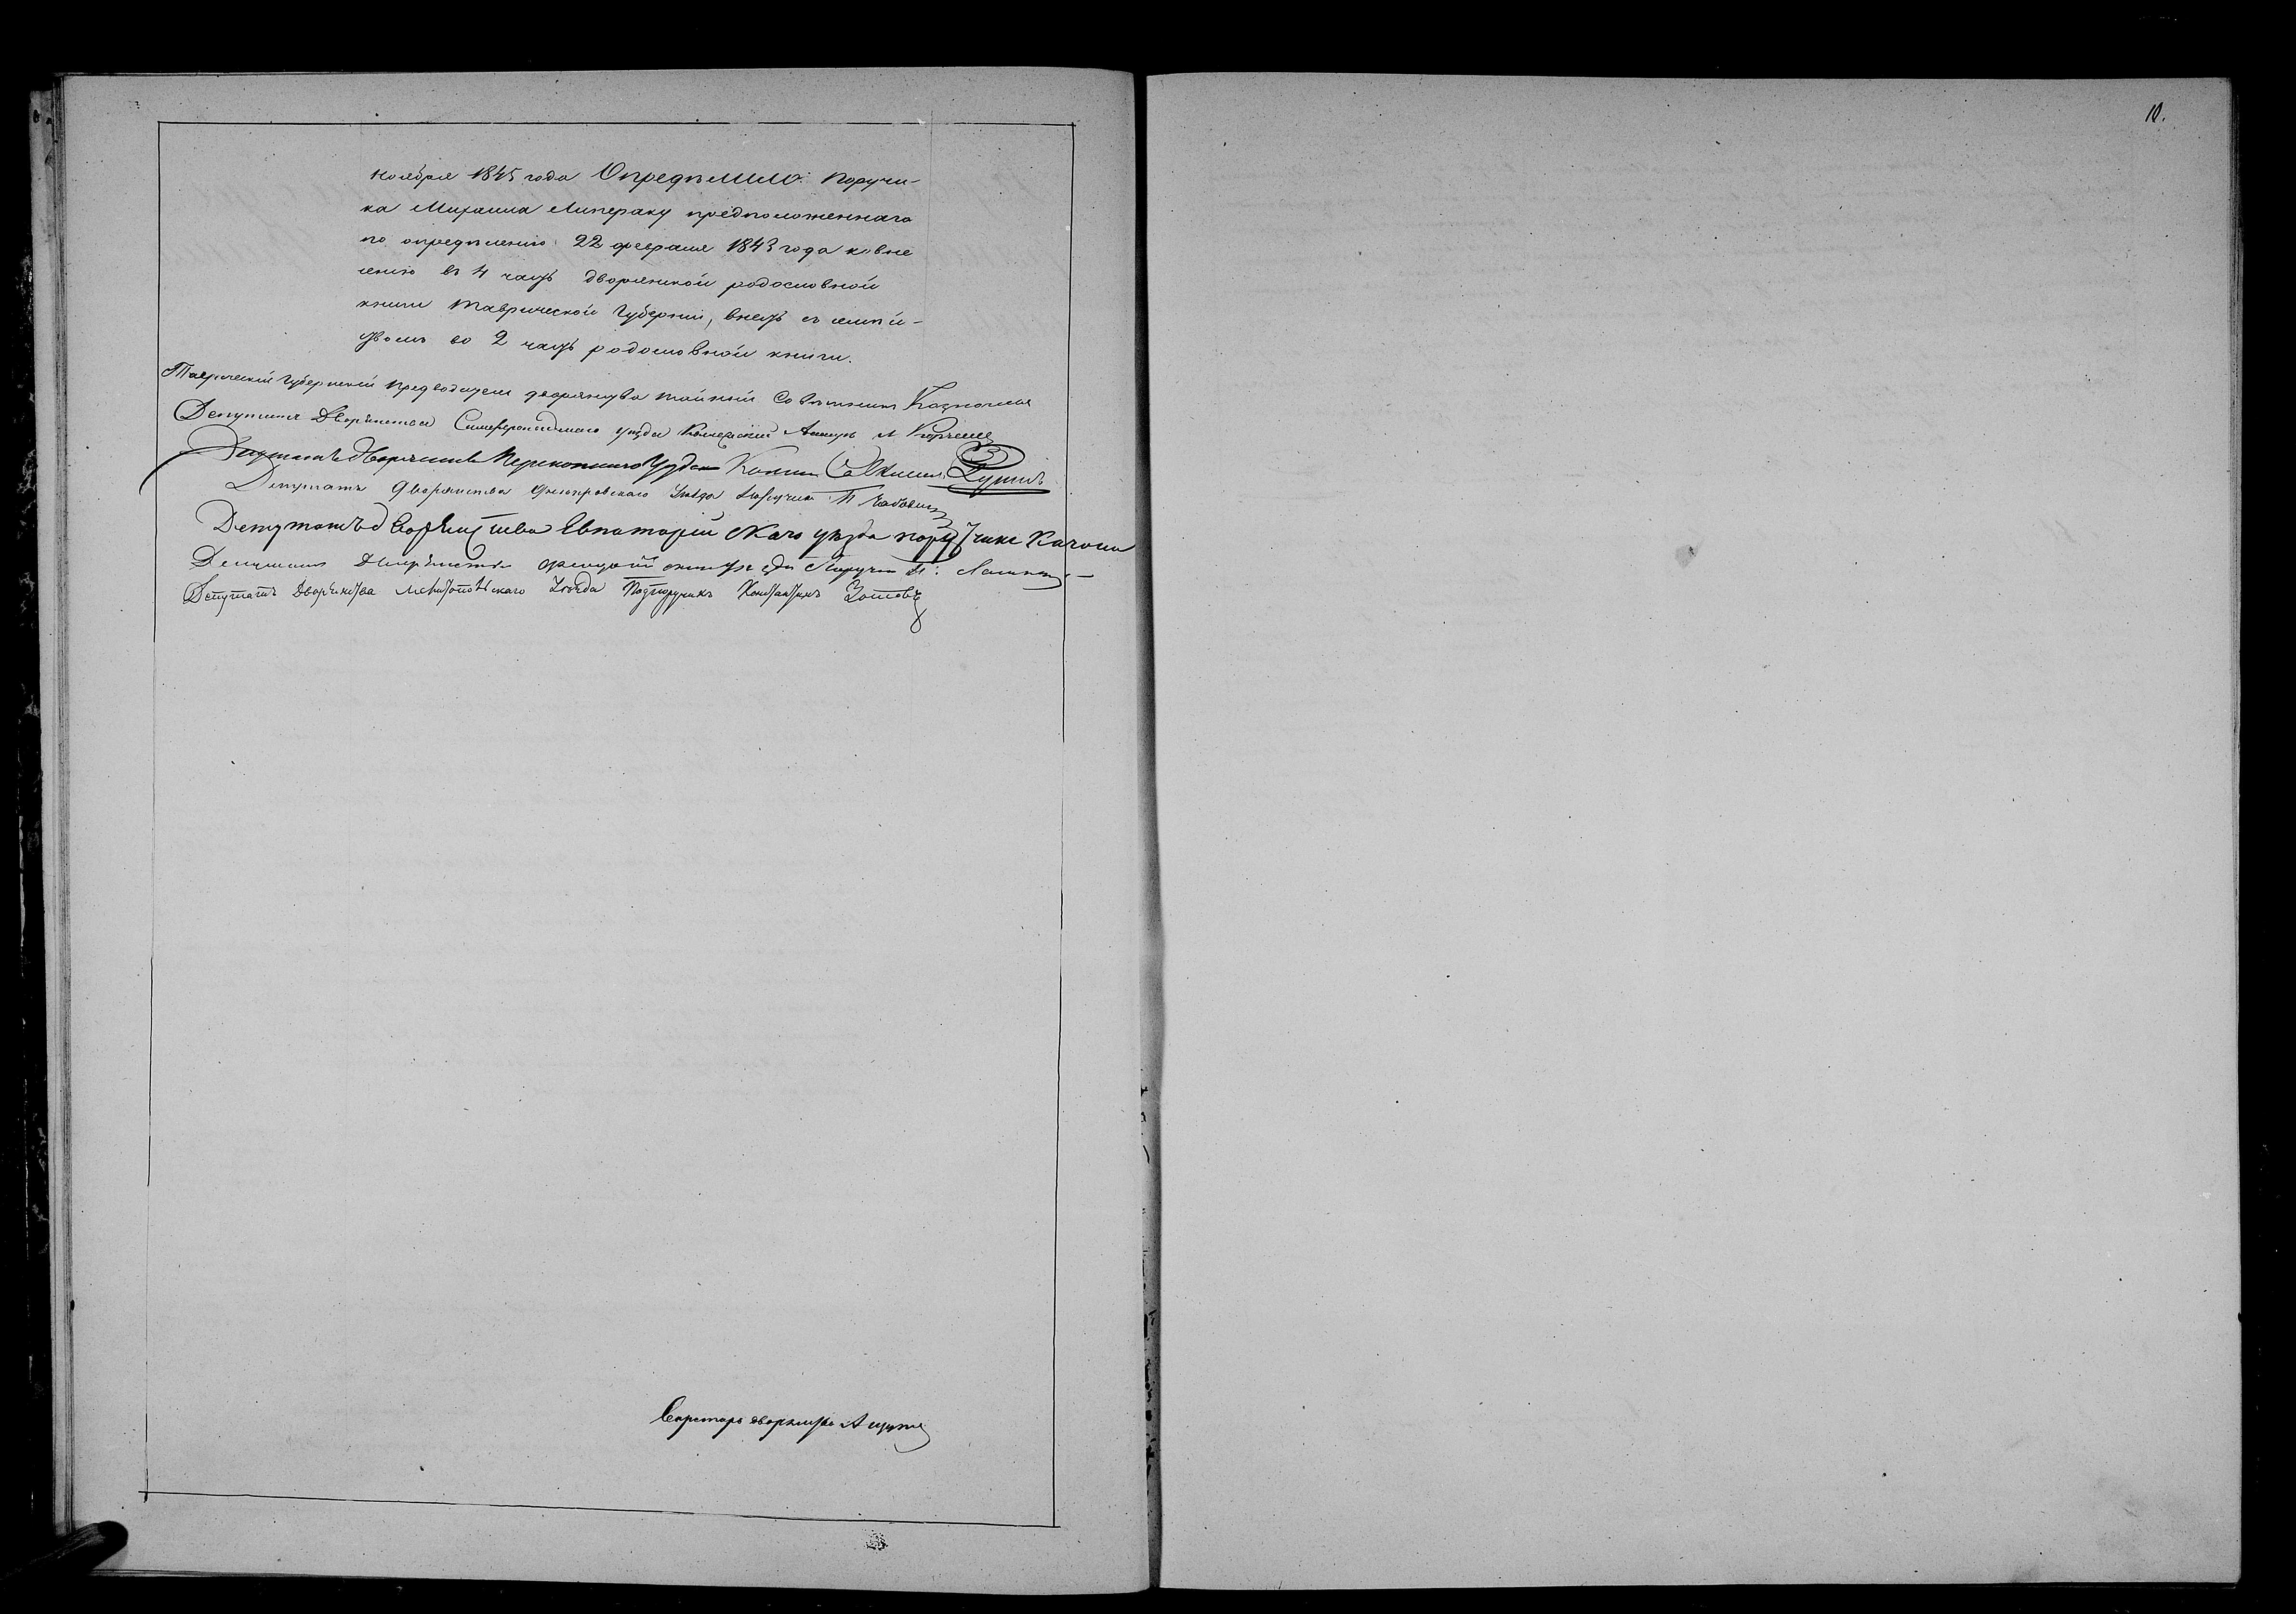 ноября 1845 года Определило: Поручи-
ка Михаила Липераку предположеннаго
по определению 22 февраля 1843 года ко вне
сению въ 4 часть дворянской родословной
книги Таврической Губернии, внесть съ семей-
ствомъ во 2 часть родословной книги.
Таврический Губернский предводитель дворянства тайный Советникъ Казначеевъ
Депутатъ Дворянства Симферопольскаго уезда Коллежский
Депутатъ Дворянства Перекопскаго Уезда
Депутатъ Дворянства Днепровскаго Уезда Поручик
Депутатъ Дворянства Евпаторийскаго уезда поручикъ Качони
Депутатъ Дворянства
Депутатъ Дворянства Мелитопольскаго Уезда Подпоручикъ Константинъ Зотовъ
Секретарь дворянства
10.